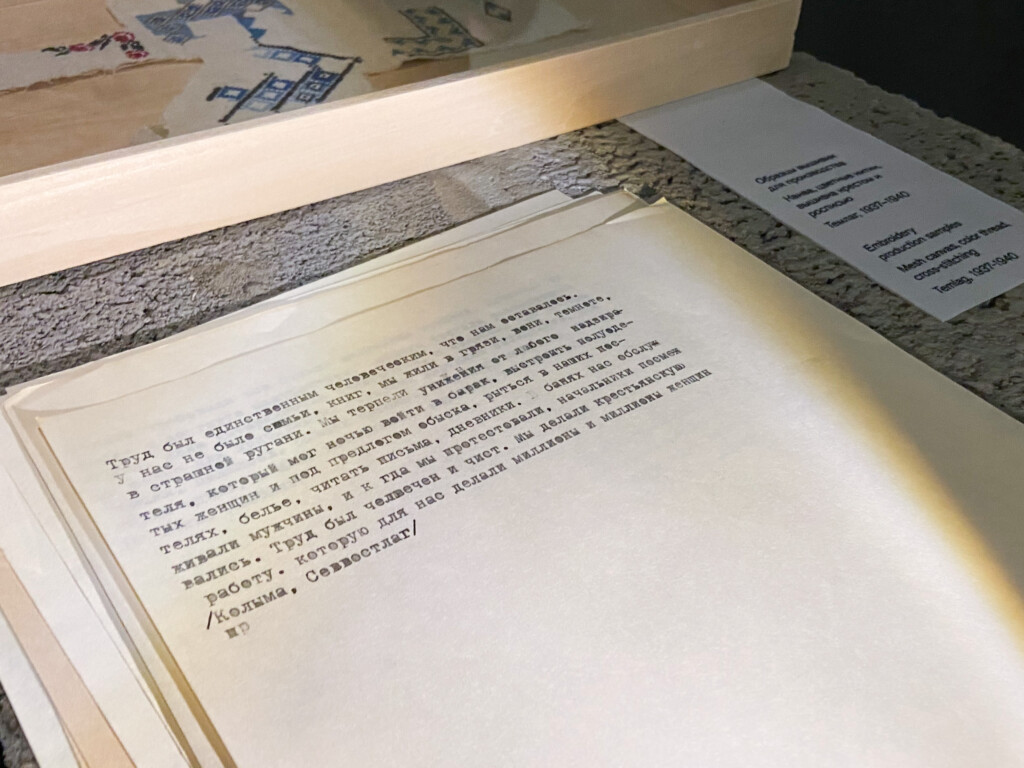 Труд был единственным человеческим, что нам оставалось.
У нас не было семьи, книг, мы жили в грязи, вони, темноте,
в страшной ругани. Мы терпели унижения от любого надзира-
теля, который мог ночью войти в барак, выстроить полуоде-
тых женщин и под предлогом обыска, рыться в наших пос-
телях, белье, читать письма, дневники. В банях нас обслуж
живали мужчины, и к гда мы протестовали, начальники посмеи
вались. Труд был человечен и чист. мы делали крестьянскую
работу. которую для нас делали миллионы и миллионы женщин
/Колыма, Севвостлаг/
пр
Образцы вышивки
для производства
Канва, цветные нитки,
вышивка крестом и
росписью
Темлаг, 1937–1940
Embroidery
production samples
Mesh canvas, color thread,
cross-stitching
Temlag, 1937–1940